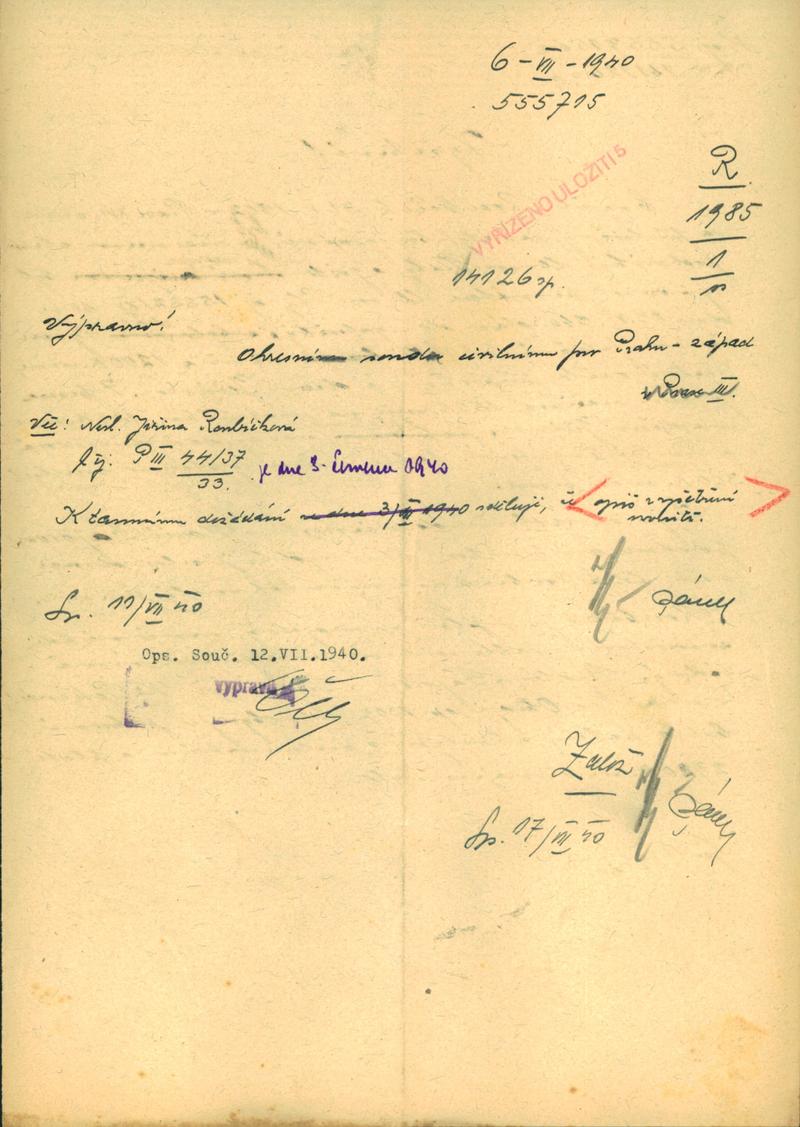 6-VII-1940
555715
R
1985
1
VYŘÍZENO ULOŽITI 5
14126
Výpravno!
Okresnímu soudu civilnímu pro Prahu-západ
v Praze III.
Věc: Nezl. Jiřina Roubíčková
P III 44/37
33.
je dne 3. června 1940
K tamnímu dožádání ze dne 3/VI 1940 sděluji, že opis z vyšetření
11/VII 40
Ops. Souč. 12.VII.1940.
vypraveno
Založ
17/VII 40